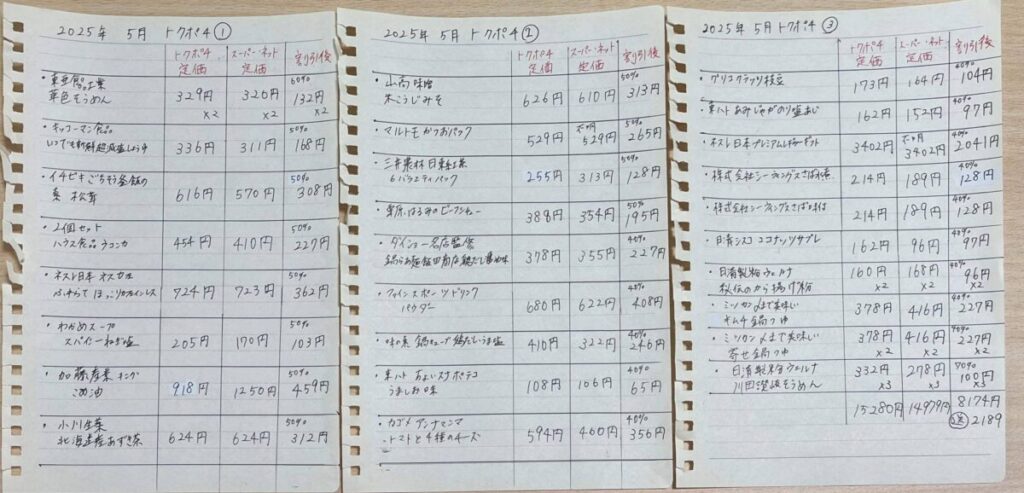 2025年 5月 トクポチ①
トクポチ定価 スーパー・ネット定価 割引後
60%
・東亜食品工業
茶色そうめん 329円 320円 132円
×2 ×2 ×2
・キッコーマン食品 50%
いつでも新鮮超減塩しょうゆ 336円 311円 168円
・イチビキごちそう釜飯の 50%
素 松茸 616円 570円 308円
・2個セット 50%
ハウス食品ラコンカ 454円 410円 227円
・ネスレ日本 ネスカフェ 50%
ふわラテ ほっこりカフェインレス 724円 723円 362円
・わかめスープ 50%
スパイシーねぎ塩 205円 170円 103円
・加藤産業 キング 50%
こめ油 918円 1250円 459円
・小川生薬 50%
北海道産あずき茶 624円 624円 312円
2025年 5月 トクポチ②
トクポチ定価 スーパー・ネット定価 割引後
・山高味噌 50%
米こうじみそ 626円 610円 313円
・マルトモ かつおパック 529円 不明 529円 50% 265円
・三井農林 日東紅茶 50%
6バラエティパック 255円 313円 128円
・栗原はるみのビーフシチュー 389円 354円 50% 195円
・ダイショー名店監修 40%
鍋らぁ麺飯田商店鶏だし醤油味 378円 355円 227円
・ファインスポーツドリンク 40%
パウダー 680円 622円 408円
・味の素 鍋キューブ 鶏だしうま塩 410円 322円 40% 246円
・東ハト ちょいスナポテコ 40%
うましお味 108円 106円 65円
・カゴメ アンナマンマ 40%
トマトと4種のチーズ 594円 460円 356円
2025年 5月 トクポチ③
トクポチ定価 スーパー・ネット定価 割引後
・グリコクラッツ枝豆 173円 164円 40% 104円
・東ハト あみじゃがのり塩あじ 162円 152円 40% 97円
・ネスレ日本プレミアムレギュラーギフト 3402円 不明 3402円 40% 2041円
・株式会社シーウィングスさば水煮 214円 189円 40% 128円
・株式会社シーウィングスさば味付 214円 189円 40% 128円
・日清シスコ ココナッツサブレ 162円 96円 40% 97円
・日清製粉ウェルナ 160円 168円 40% 96円
秘伝のから揚げ粉 ×2 ×2 ×2
・ミツカン〆まで美味しい 40%
キムチ鍋つゆ 378円 416円 227円
・ミツカン〆まで美味しい 378円 416円 40% 227円
寄せ鍋つゆ ×2 ×2 ×2
・日清製粉ウェルナ 332円 278円 70% 100円
川田讃岐そうめん ×3 ×3 ×3
15280円 14979円 8174円
送 2189